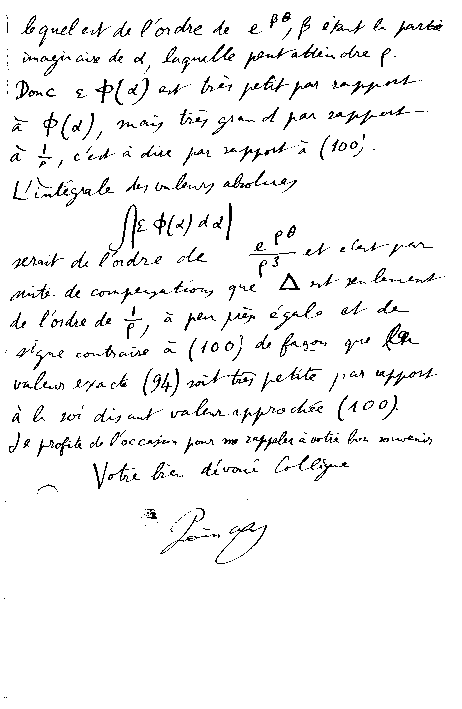 lequel est de l'ordre de e^{βθ}, β étant la partie
imaginaire de α, laquelle peut atteindre ρ.
Donc ε Φ(α) est très petit par rapport
à Φ(α), mais très grand par rapport
à 1/ρ, c'est à dire par rapport à (100).
L'intégrale des valeurs absolues
∫|ε Φ(α) dα|
serait de l'ordre de e^{ρθ}/ρ^3 et c'est par
suite de compensations que Δ est seulement
de l'ordre de 1/ρ, à peu près égale et de
signe contraire à (100) de façon que la
valeur exacte (94) soit très petite par rapport
à la soi disant valeur approchée (100).
Je profite de l'occasion pour me rappeler à votre bon souvenir
Votre bien dévoué Collègue
Poincaré